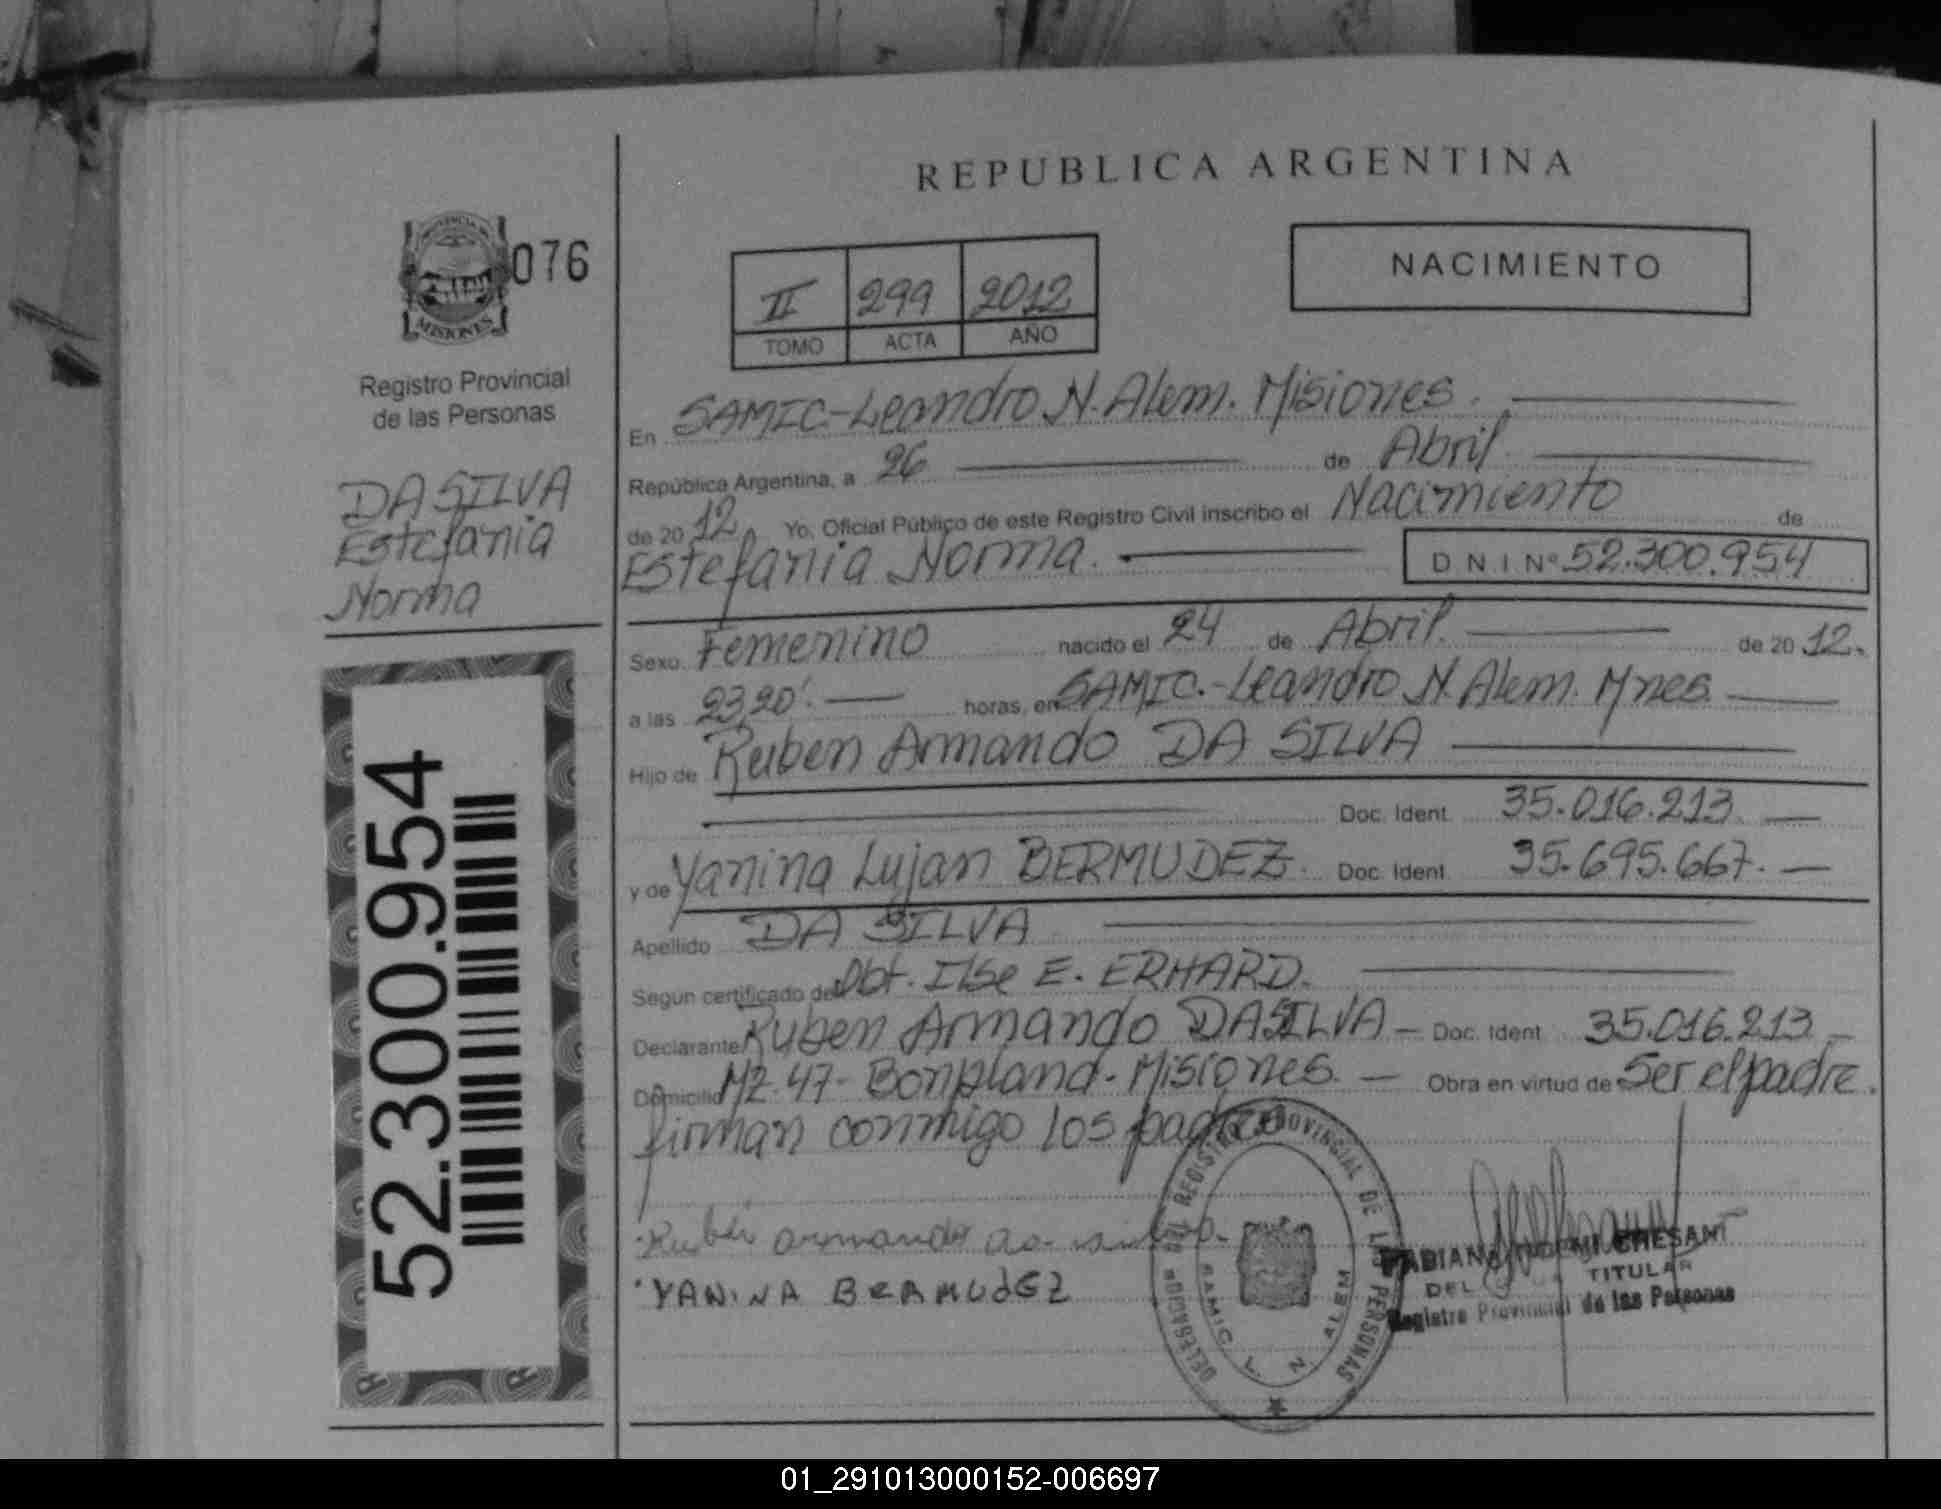 REPUBLICA ARGENTINA
PROVINCIA DE
MISIONES
076
Registro Provincial
de las Personas
DA SILVA
Estefania
Norma
52.300.954
II 299 2012
TOMO ACTA AÑO
NACIMIENTO
En SAMIC-Leandro N. Alem. Misiones.
República Argentina, a 26 de Abril.
de 20 12. Yo, Oficial Público de este Registro Civil inscribo el Nacimiento de
Estefania Norma. D N I Nº 52.300.954
Sexo Femenino nacido el 24 de Abril. de 20 12.
a las 23,20'. horas, en SAMIC.-Leandro N. Alem. Mnes.
Hijo de Ruben Armando DA SILVA
Doc. Ident. 35.016.213
y de Yanina Lujan BERMUDEZ. Doc. Ident. 35.695.667.
Apellido DA SILVA
Según certificado de Obt. Ilse E. ERHARD.
Declarante Ruben Armando DA SILVA - Doc. Ident. 35.016.213
Domicilio MZ.47- Bonpland- Misiones. - Obra en virtud de Ser el padre.
firman conmigo los padres
Ruben armando da silva.
YANINA BERMUdEZ
DELEGACION DEL REGISTRO PROVINCIAL DE LAS PERSONAS
SAMIC. L. N. ALEM
FABIANA NOEMI CHESANI
TITULAR
Registro Provincial de las Personas
01_291013000152-006697